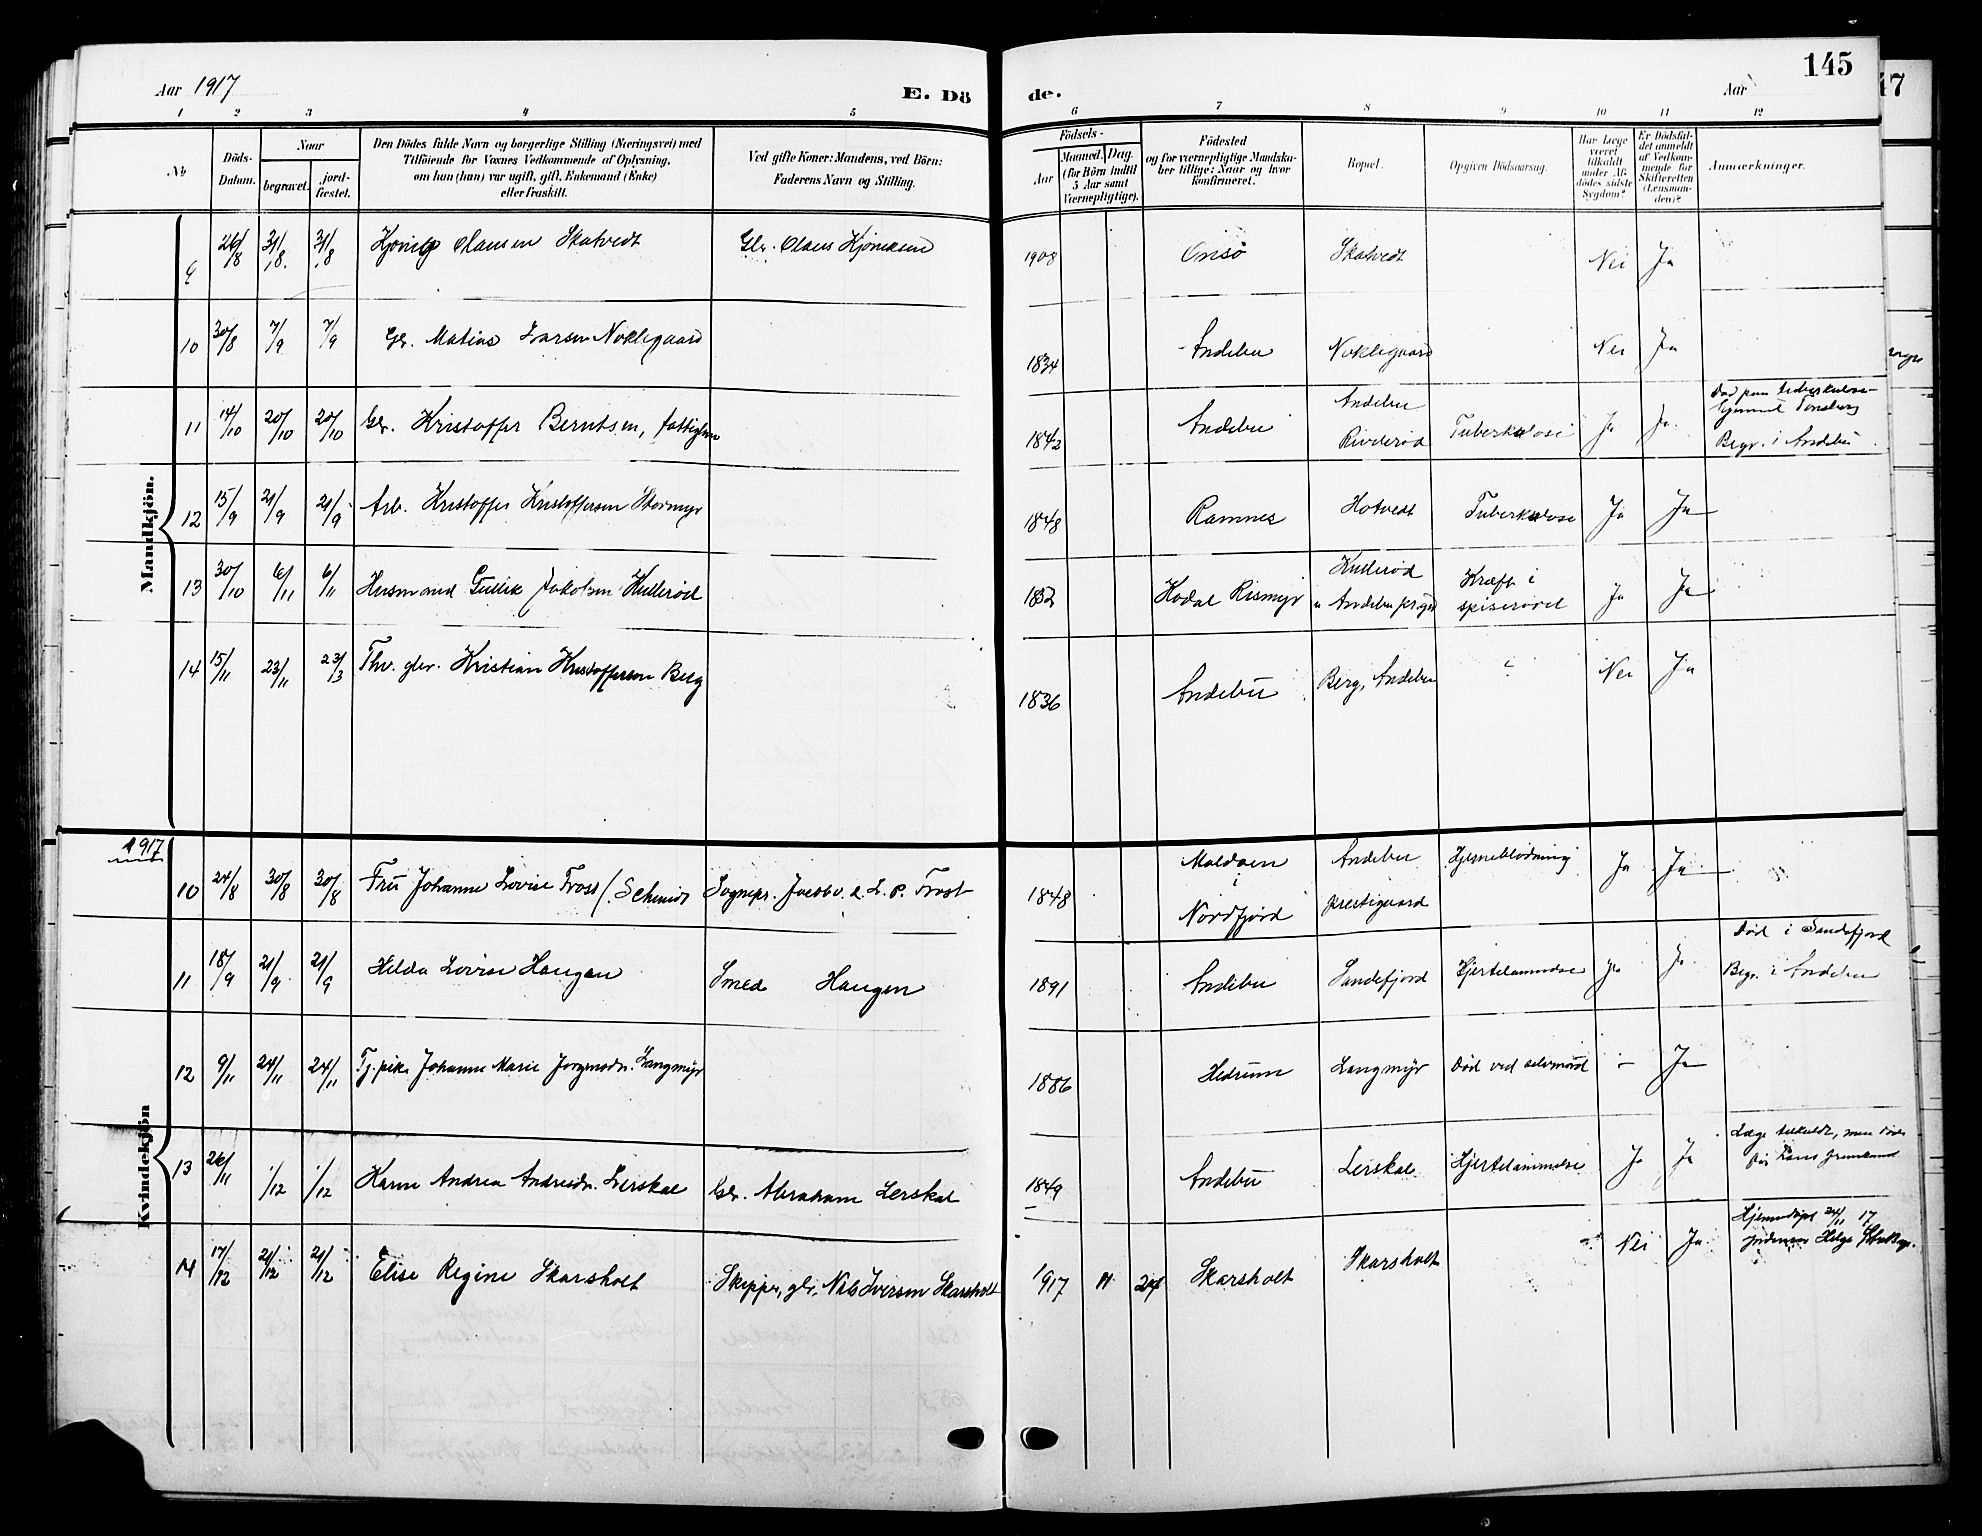 145
47
Aar 1917
E. Dö
de.
Aar
1 2 3 4 5 6 7 8 9 10 11 12
No
Döds-Datum.
Naar
begravet.
jord-fæstet.
Den Dödes fulde Navn og borgerlige Stilling (Næringsvei) med
Tilföiende for Voxnes Vedkommende af Oplysning,
om han (hun) var ugift, gift, Enkemand (Enke)
eller fraskilt.
Ved gifte Koner: Mandens, ved Börn:
Faderens Navn og Stilling.
Födsels-
Aar
Maaned. Dag.
(for Börn indtil
5 Aar samt
Værnepligtige).
Födested
og for værnepligtige Mandska-
ber tillige: Naar og hvor
konfirmeret.
Bopæl.
Opgiven Dödsaarsag.
Har Læge
været
tilkaldt
under Af-
dödes sidste
Sygdom?
Er Dödsfal-
det anmeldt
af Vedkom-
mende for
Skifteretten
(Lensman-
den)?
Anmærkninger.
Mandkjön.
9 26/8 31/8. 31/8 Olausen Skatvedt Gbr. Olaus 1908 Skatvedt Nei Ja
10 30/8 7/9 7/9 Gb. Matias Larsen Noklegaard 1834 Andebu Noklegaard Nei Ja
11 14/10 20/10 20/10 Gbr. Kristoffer Berntsen, 1842 Andebu Andebu Tuberkulose Ja Ja Död paa tuberkulose-
hjemmet Tönsberg
Begr. i Andebu
12 15/9 21/9 21/9 Arb. Kristoffer Kristoffersen Stormyr 1848 Ramnes Hotvedt Tuberkulose Ja Ja
13 30/10 6/11 6/11 Husmand Gullik Jakobsen Hulleröd 1832 Hodal Rismyr Andebu prgjd Kræft i
spiseröret Ja Ja
14 15/11 23/11 23/3 Fhv. gbr. Kristian Kristoffersen Berg 1836 Andebu Berg, Andebu Nei Ja
1917
Kvindekjön
10 24/8 30/8 30/8 Fru Johanne Lovise Frost (Schmidt Sognepr. Jacob v. d. L. P. Frost 1848 Maldöen
i
Nordfjord Andebu
prestegaard Hjerneblödning Ja Ja
11 18/9 21/9 21/9 Hilda Lovise Haugen Smed Haugen 1891 Andebu Sandefjord Hjertelammelse Ja Ja Död i Sandefjord
Begr. i Andebu
12 9/11 24/11 24/11 Tj.pike Johanne Marie Jorgensdtr. Langmyr 1886 Hedrum Langmyr Död ved selvmord - Ja
13 26/11 1/12 1/12 Karen Andrea Andresdtr. Lerskal Gbr. Abraham Lerskal 1849 Andebu Lerskal Hjertelammelse Ja Ja Læge tilkaldt, men döde
för hans fremkomst
14 17/12 21/12 21/12 Elise Regine Skarsholt Skipper, gbr. Nils Iversen Skarsholt 1917 11 24 Skarsholt Skarsholt Nei Ja Hjemmedöpt 24/11 17